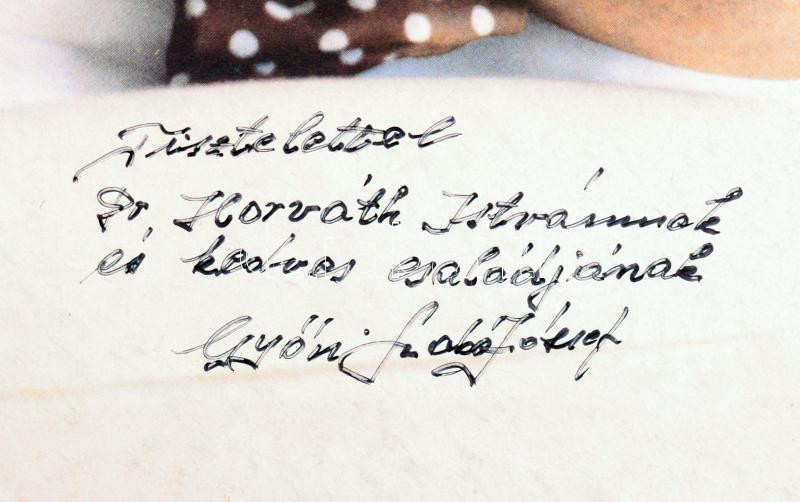 Tisztelettel
Dr Horváth Istvánnak
és kedves családjának
Győri Szabó József